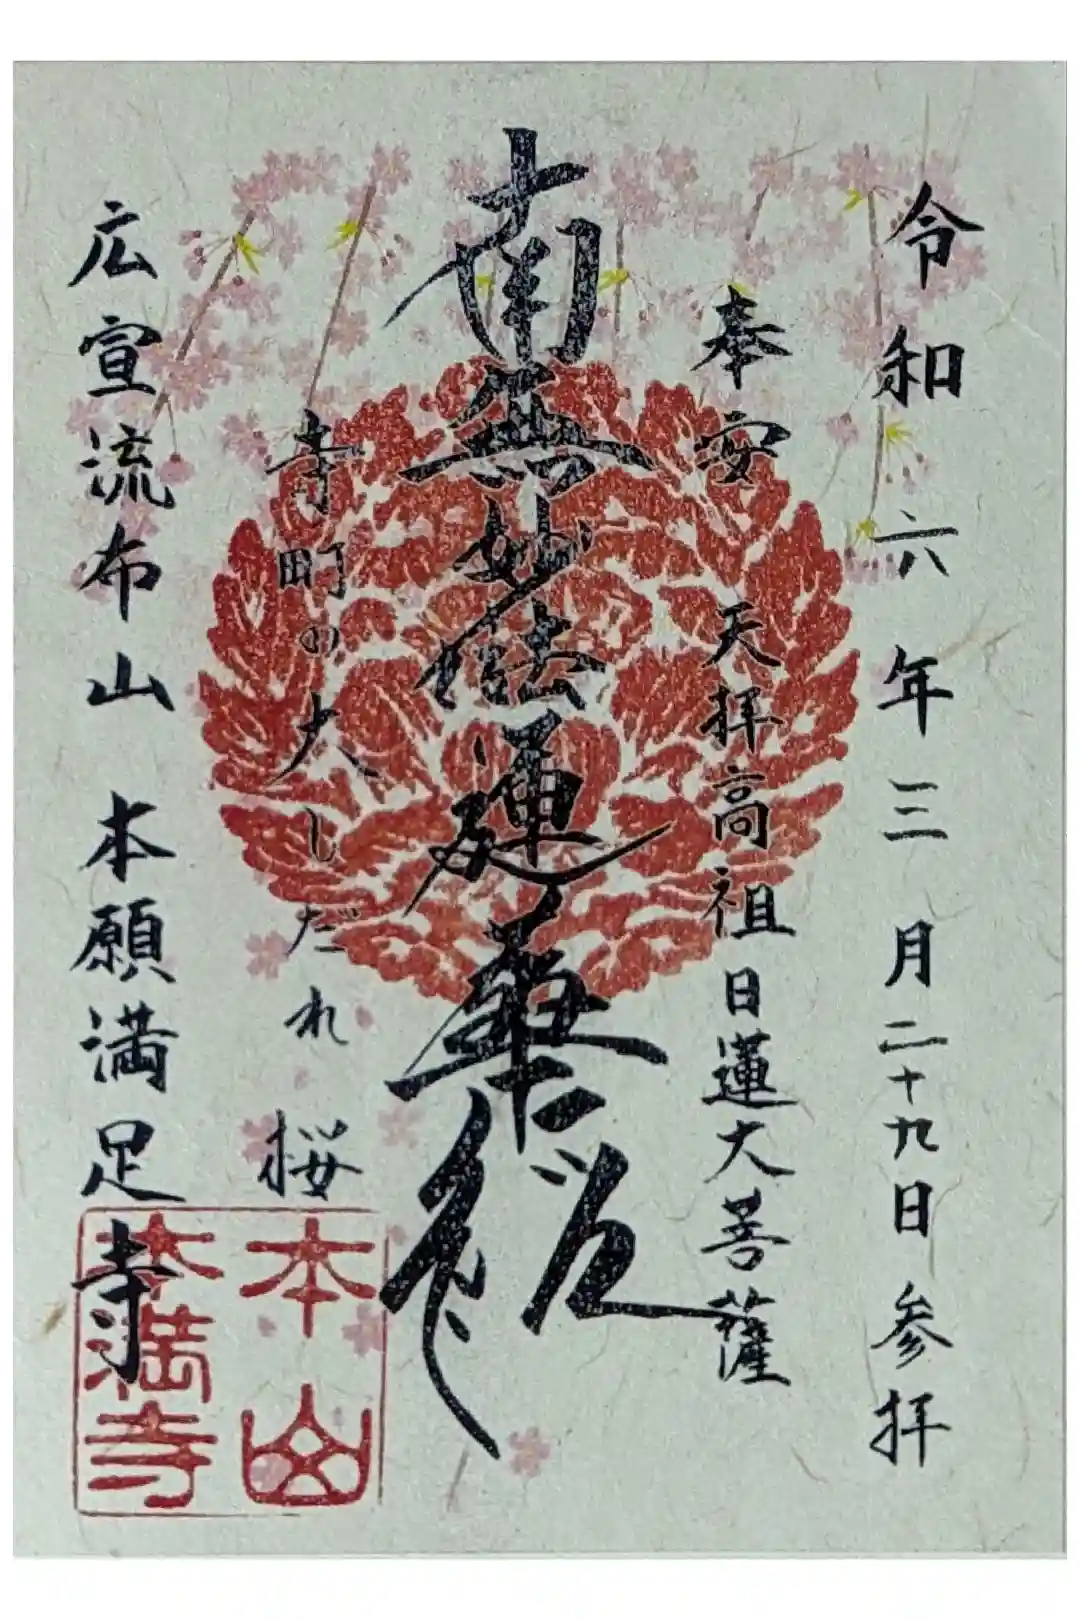 令和六年三月二十九日参拝
奉安 天拝高祖日蓮大菩薩
南無妙法蓮華経
寺町の大しだれ桜
広宣流布山 本願満足寺
本山
本満寺